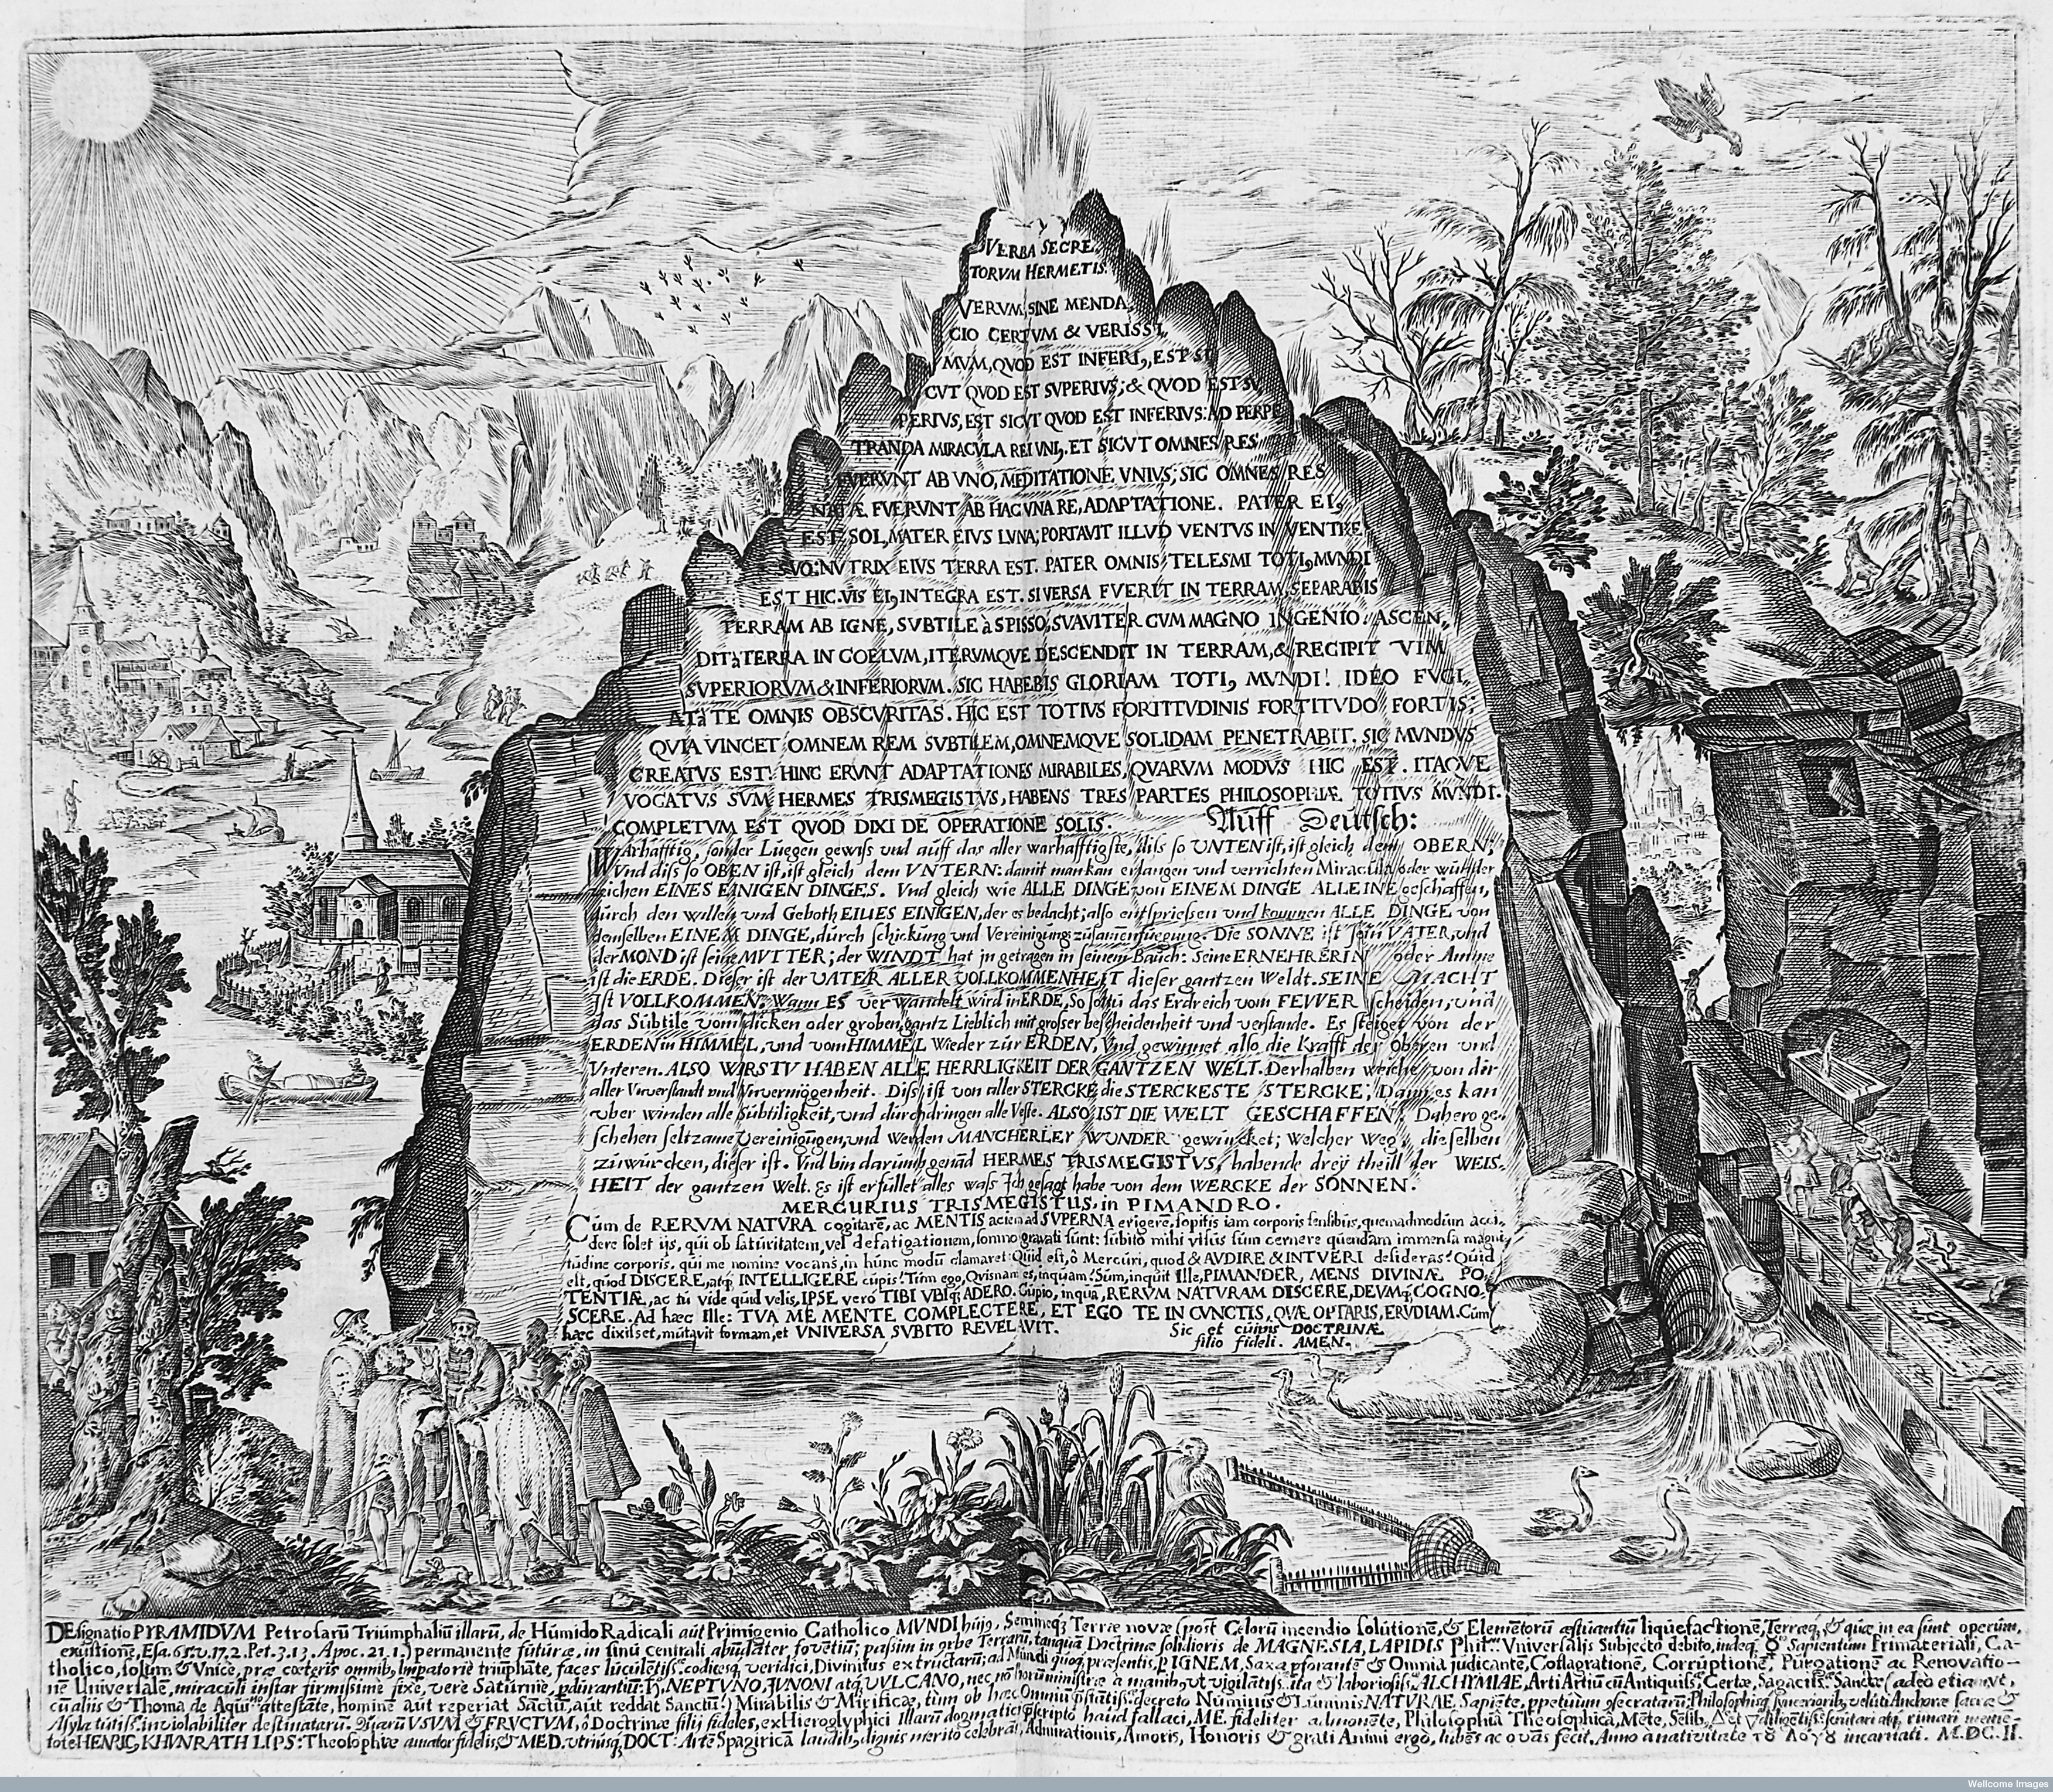 VERBA SECRE
TORVM HERMETIS.
VERVM, SINE MENDA
CIO CERTVM & VERISSI
MVM, QVOD EST INFERI9, EST SI
CUT QVOD EST SVPERIVS; & QVOD EST SV
PERIVS, EST SICVT QVOD EST INFERIVS: AD PERPE
TRANDA MIRACVLA REI UNI9. ET SICVT OMNES RES
FVERVNT AB VNO, MEDITATIONE VNIVS; SIC OMNES RES
NATÆ FVERVNT AB HAC VNA RE, ADAPTATIONE. PATER EI9
EST SOL, MATER EIVS LVNA; PORTAVIT ILLVD VENTVS IN VENTRE
SVO: NVTRIX EIVS TERRA EST. PATER OMNIS TELESMI TOTI9 MVNDI
EST HIC. VIS EI9 INTEGRA EST. SI VERSA FVERIT IN TERRAM, SEPARABIS
TERRAM AB IGNE, SVBTILE à SPISSO, SVAVITER CVM MAGNO INGENIO. ASCEN,
DIT à TERRA IN COELVM, ITERVMQVE DESCENDIT IN TERRAM, & RECIPIT VIM
SVPERIORVM & INFERIORVM. SIC HABEBIS GLORIAM TOTI9 MVNDI! IDEO FVGI,
AT à TE OMNIS OBSCVRITAS. HIC EST TOTIVS FORTITVDINIS FORTITVDO FORTIS;
QVIA VINCET OMNEM REM SVBTILEM, OMNEMQVE SOLIDAM PENETRABIT. SIC MVNDVS
CREATVS EST. HINC ERVNT ADAPTATIONES MIRABILES, QVARVM MODVS HIC EST. ITAQVE
VOCATVS SVM HERMES TRISMEGISTVS, HABENS TRES PARTES PHILOSOPHIÆ TOTIVS MVNDI.
COMPLETVM EST QVOD DIXI DE OPERATIONE SOLIS. Auff Deutsch:
WArhafftig, sonder Luegen gewiss vnd auff das aller warhafftigste, diss so UNTEN ist, ist gleich dem OBERN;
Vnd diss so OBEN ist, ist gleich dem VNTERN: damit man kan erlangen und verrichten Miracula oder wunder
zeichen EINES EINIGEN DINGES. Vnd gleich wie ALLE DINGE von EINEM DINGE ALLEINE geschaffen,
durch den willen vnd Geboth EINES EINIGEN, der es bedacht; also entspriessen vnd kommen ALLE DINGE von
demselben EINEM DINGE, durch schickung vnd Vereinigung zusamenfuegung. Die SONNE ist sein VATER, vnd
der MOND ist seine MVTTER; der WINDT hat jn getragen in seinem Bauch: Seine ERNEHRERIN oder Amme
ist die ERDE. Dieser ist der VATER ALLER VOLLKOMMENHEIT dieser gantzen Weldt. SEINE MACHT
Ist VOLLKOMMEN. Wann ES verwandelt wird in ERDE, So soltu das Erdreich vom FEVVER scheiden, und
das Subtile vom dicken oder groben, gantz Lieblich mit grosser bescheidenheit und verstande. Es steiget von der
ERDEN in HIMMEL, vnd vom HIMMEL Wieder zur ERDEN, Vnd gewinnet also die Krafft der Oberen vnd
Vnteren. ALSO WIRSTV HABEN ALLE HERRLIGKEIT DER GANTZEN WELT. Derhalben weiche von dir
aller Vnverstandt vnd Vnvermögenheit. Diss ist von aller STERCKE die STERCKESTE STERCKE; Dann es kan
vber winden alle Subtiligkeit, vnd durchdringen alle Veste. ALSO IST DIE WELT GESCHAFFEN. Dahero ge,
schehen seltzame Vereinigungen, vnd werden MANCHERLEY WUNDER gewürcket; welcher Weg, dieselben
zuwürcken, dieser ist. Vnd bin darumb genad HERMES TRISMEGISTVS, habende drey theill der WEIS,
HEIT der gantzen Welt. Es ist erfüllet alles wass Ich gesagt habe von dem WERCKE der SONNEN.
MERCURIUS TRISMEGISTUS, in PIMANDRO.
Cum de RERVM NATVRA cogitarē, ac MENTIS aciem ad SVPERNA erigere, sopitis iam corporis sensibus, quemadmodum acci,
dere solet ijs, qui ob saturitatem, vel defatigationem, somno gravati sunt: subito mihi visus sum cernere quendam immensa magni,
tudine corporis, qui me nomine vocans, in hunc modū clamaret: Quid est, ô Mercuri, quod & AVDIRE & INTVERI desideras? Quid
est, quod DISCERE, atq; INTELLIGERE cupis? Tum ego, Quisnam es, inquam? Sum, inquit Ille, PIMANDER, MENS DIVINÆ PO,
TENTIÆ, ac tu vide quid velis, IPSE vero TIBI VBIQ; ADERO. Cupio, inquā, RERVM NATVRAM DISCERE, DEVMQ; COGNO,
SCERE. Ad hæc Ille: TVA ME MENTE COMPLECTERE, ET EGO TE IN CVNCTIS, QVÆ OPTARIS, ERVDIAM. Cum
hæc dixisset, mutavit formam, et VNIVERSA SVBITO REVELAVIT. Sic et cuius DOCTRINÆ
filio fideli. AMEN.
DEsignatio PYRAMIDVM Petrosarū Triumphaliū illarū, de Humido Radicali aut Primigenio Catholico MVNDI huj9, Semineq; Terræ novæ (post Celorū incendio solutionē, & Elemētorū æstuantiū liquefactionē, Terræq; & quæ in ea sunt operum,
exustionē, Esa. 65. v. 17. 2. Pet. 3. 13. Apoc. 21. 1.) permanente futuræ, in sinu centrali fovetiū; passim in orbe Terrarū, tanqua Doctrinæ solidioris de MAGNESIA, LAPIDIS Phil. Vniversalis Subjecto debito, indeq; ☿ Sapientum Primateriali, Ca-
tholico, solum & Vnice, præ cæteris omnib9 Impatorie triūphāte, faces luculētiss. codicesq; veridici, Divinitus extructarū; ad Mundi quoq; præsentis, p IGNEM, Saxa pforantē & Omnia judicantē, Coflagratione, Corruptionē, Purgationē ac Renovatio-
nē Universalē, miraculi instar firmissime fixe, vere Saturnie, pdurantiū: NEPTVNO, JVNONI atq; VULCANO, ALCHYMIAE, Arti Artiū cū Antiquiss. Certæ, Sagaciss. Sanctæ (adeo etiam vt,
cū aliis & Thoma de Aquino attestāte, hominē aut reperiat Sāctū, aut reddat Sanctū:) Mirabilis & Mirificæ, tum ob hāc decreto Numinis & Luminis NATVRAE Sapiēte, ppetuum secratarū; Philosophisq; syncerioribus, veluti Anchoræ sacræ &
Asyla tutiss. inviolabiliter destinatarū. Quarū VSVM & FRVCTVM, ô Doctrinæ filij fideles, ex Hieroglyphici Illarū dogmatici scripto haud fallaci, ME fideliter admonēte, Philosophia Theosophica, Mēte,
HENRIC9 KHVNRATH LIPS: Theosophiæ amator fidelis & MED. vtriusq; DOCT: Arte Spagirica laudib9 dignis merito celebrat, Admirationis, Amoris, Honoris & grati Animi ergo, lubēs ac ovās fecit, Anno a nativitate τȣ Λογȣ incarnati. M.DC.II.
Wellcome Images